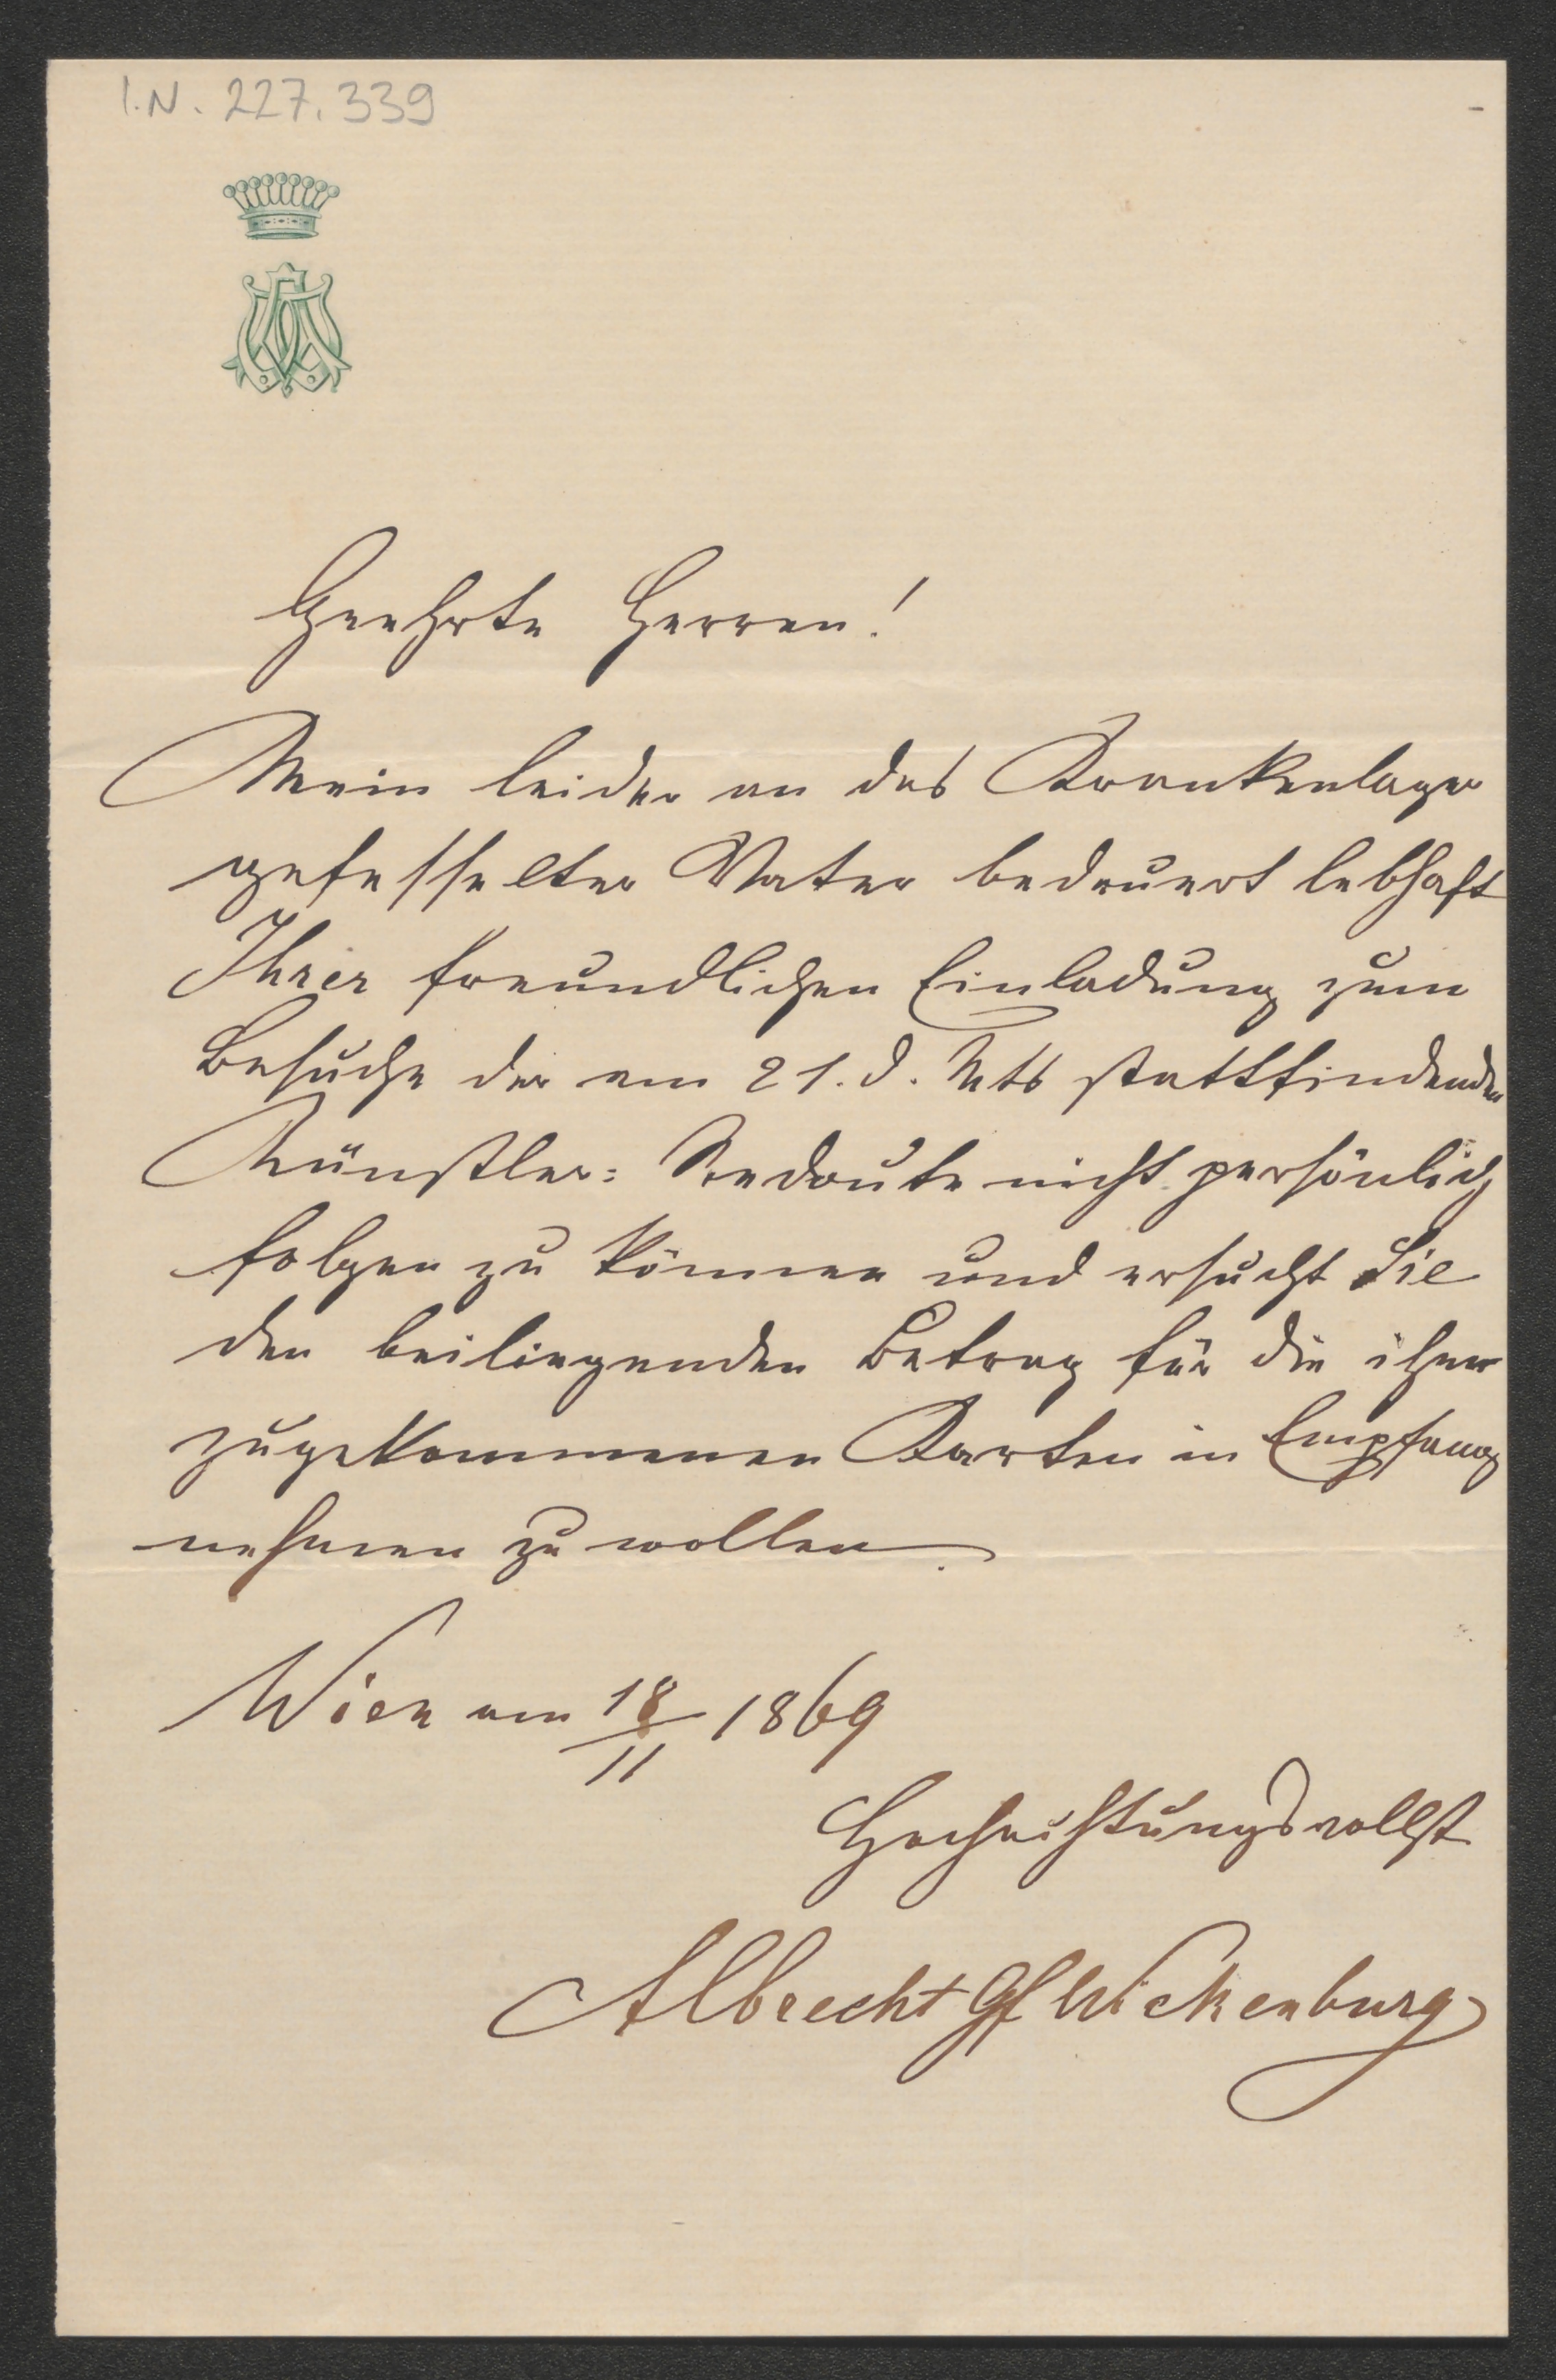 I.N. 227.339
Geehrte Herren!
Mein leider an das Krankenlager
gefesselter Vater bedauert lebhaft
Ihrer freundlichen Einladung zum
Besuche der am 21. d. Mts stattfindenden
Künstler= Redoute nicht persönlich
folgen zu können und ersucht Sie
den beiliegenden Betrag für die ihm
zugekommenen Karten in Empfang
nehmen zu wollen.
Wien am 18/11 1869
Hochachtungsvollst
Albrecht Gf Wickenburg